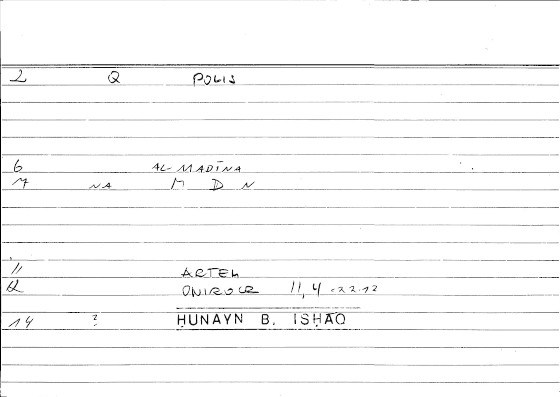 2 Q POLIS
6 AL-MADĪNA
7 NA M D N
11 ARTEM
12 ONIROCR 11, 4 -22.12
14 ? ḤUNAYN B. ISḤĀQ